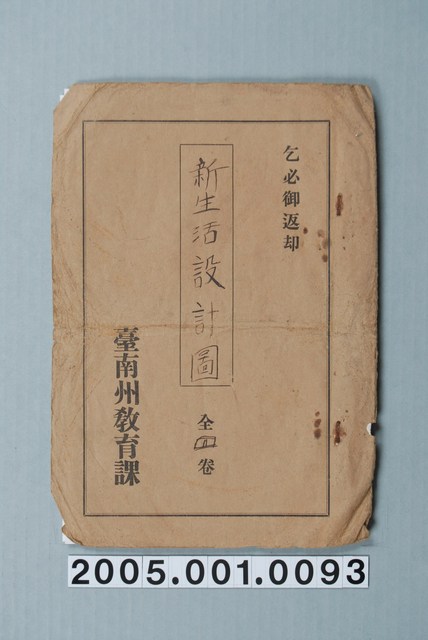 乞必御返却
新生活設計圖
全四卷
臺南州教育課
2005.001.0093